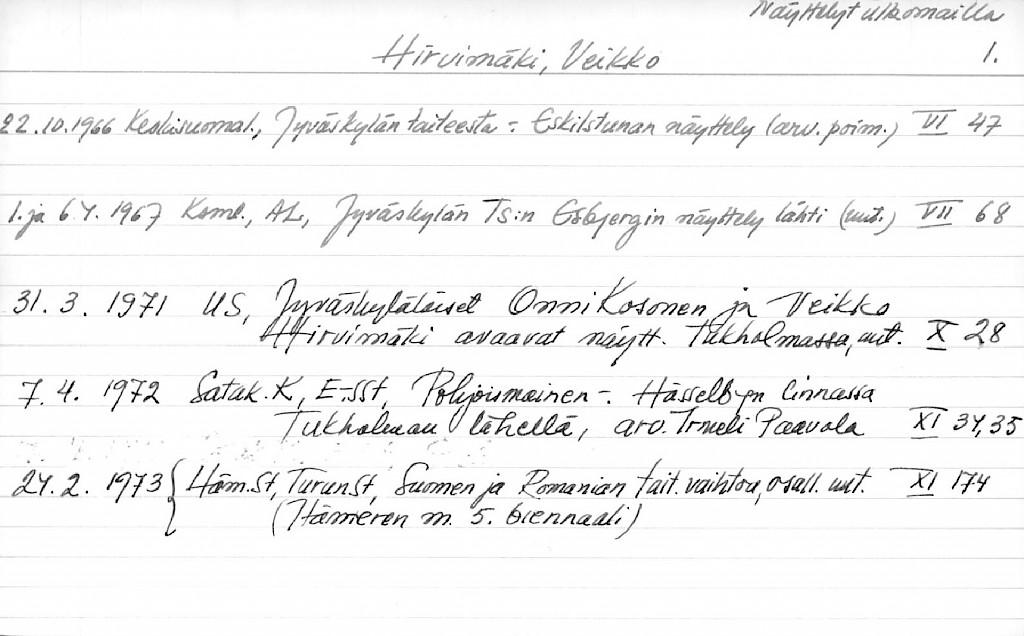 Näyttelyt ulkomailla
Hirvimäki, Veikko 1.
22.10.1966 Keskisuomal., Jyväskylän taiteesta - Eskilstunan näyttely (arv. poim.) VI 47
1. ja 6.4. 1967 Ksml., AL, Jyväskylän Ts:n Esbjergin näyttely lähti (uut.) VII 68
31. 3. 1971 US, Jyväskyläläiset Onni Kosonen ja Veikko
Hirvimäki avaavat näytt. Tukholmassa, uut. X 28
7. 4. 1972 Satak. K, E-SSt, Pohjoismainen -. Hässelbyn linnassa
Tukholman lähellä, arv. Irmeli Paavola XI 34,35
24. 2. 1973 { Häm.St, TurunSt, Suomen ja Romanian tait. vaihtou, osall. uut. XI 174
(Hämeren m. 5. biennaali)